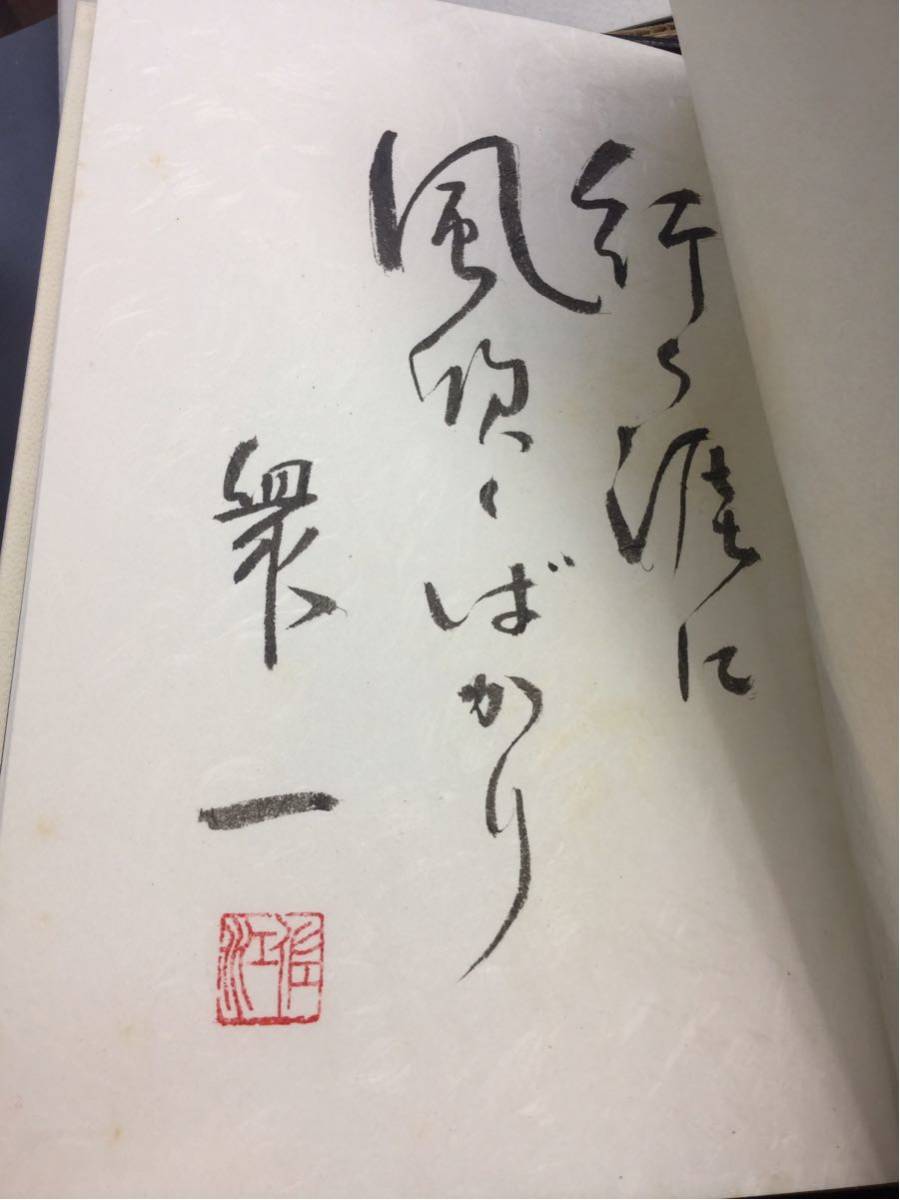 行く涯に
風吹くばかり
衆一